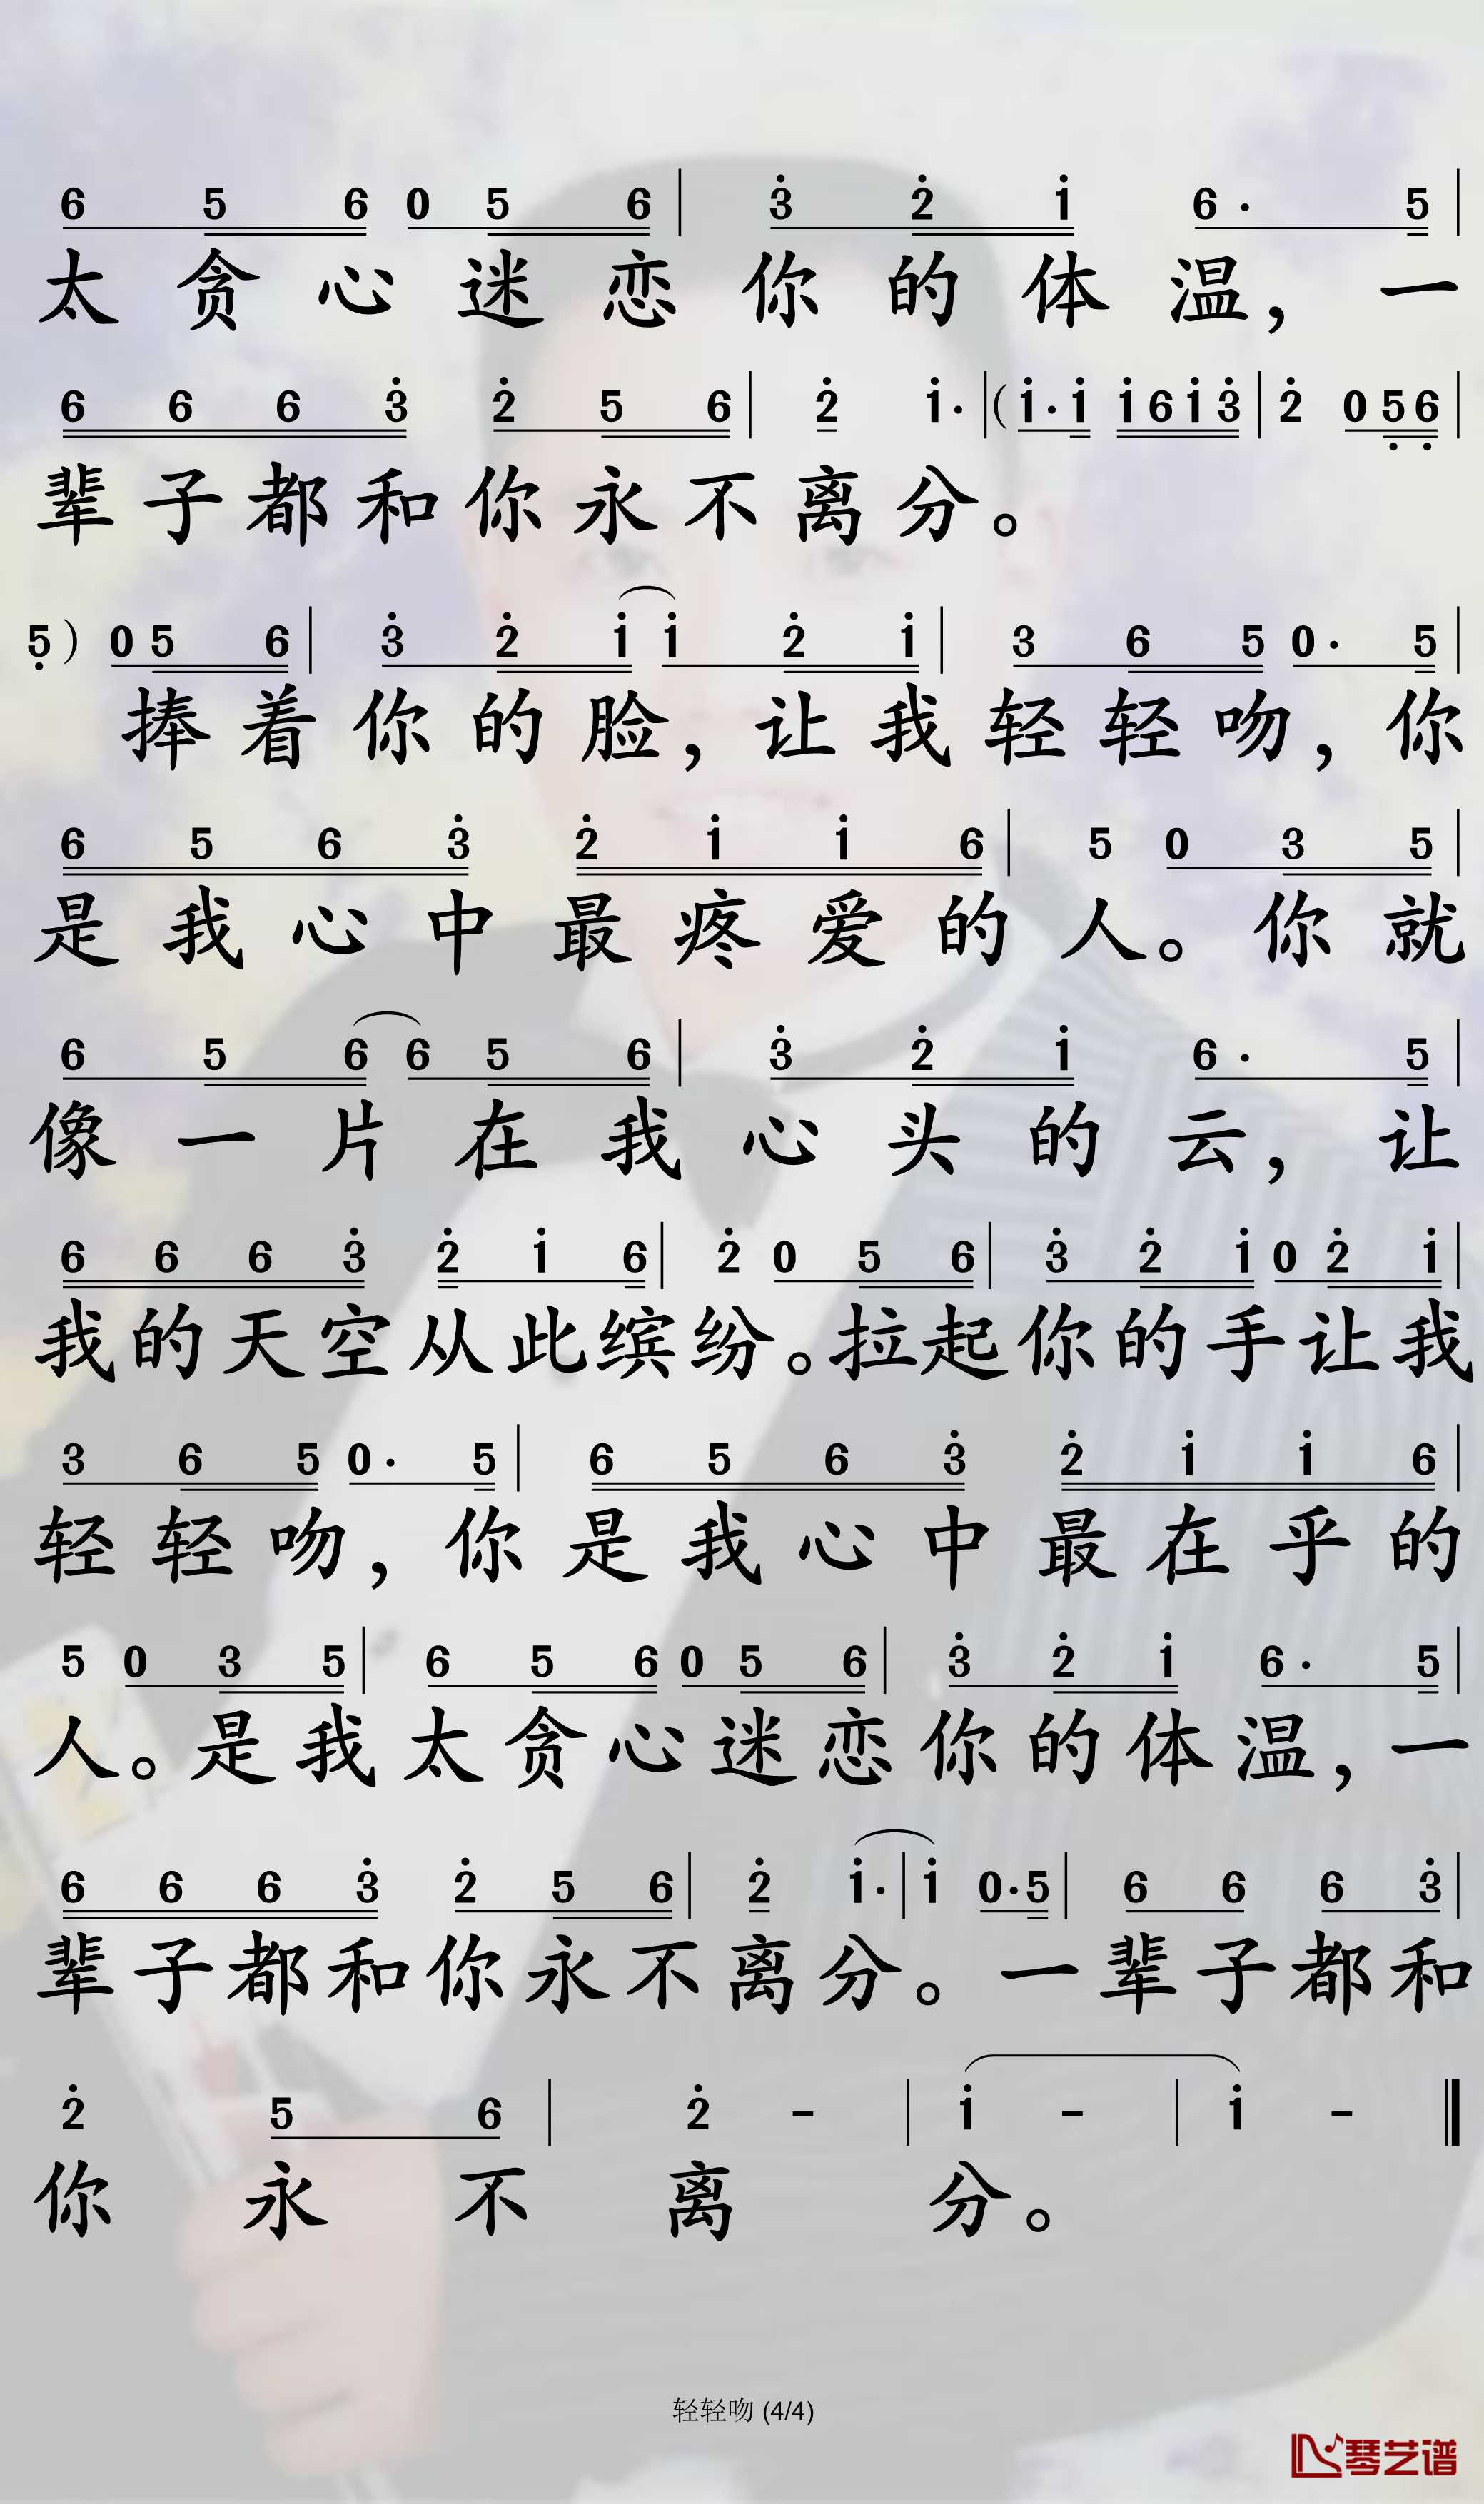 6 5 6 0 5 6 | 3̇ 2̇ 1̇ 6· 5 |
太贪心迷恋你的体温，一
6 6 6 3̇ 2̇ 5 6 | 2̇ 1̇· | (1̇· 1̇ 1̇ 6 1̇ 3̇ | 2̇ 0 5̣ 6̣ |
辈子都和你永不离分。
5̣ ) 0 5 6 | 3̇ 2̇ 1̇ 1̇ 2̇ 1̇ | 3 6 5 0· 5 |
捧着你的脸，让我轻轻吻，你
6 5 6 3̇ 2̇ 1̇ 1̇ 6 | 5 0 3 5 |
是我心中最疼爱的人。你就
6 5 6 6 5 6 | 3̇ 2̇ 1̇ 6· 5 |
像一片在我心头的云，让
6 6 6 3̇ 2̇ 1̇ 6 | 2̇ 0 5 6 | 3̇ 2̇ 1̇ 0 2̇ 1̇ |
我的天空从此缤纷。拉起你的手让我
3 6 5 0· 5 | 6 5 6 3̇ 2̇ 1̇ 1̇ 6 |
轻轻吻，你是我心中最在乎的
5 0 3 5 | 6 5 6 0 5 6 | 3̇ 2̇ 1̇ 6· 5 |
人。是我太贪心迷恋你的体温，一
6 6 6 3̇ 2̇ 5 6 | 2̇ 1̇· | 1̇ 0· 5 | 6 6 6 3̇ |
辈子都和你永不离分。一辈子都和
2̇ 5 6 | 2̇ - | 1̇ - | 1̇ - ‖
你永不离分。
轻轻吻 (4/4)
琴艺谱